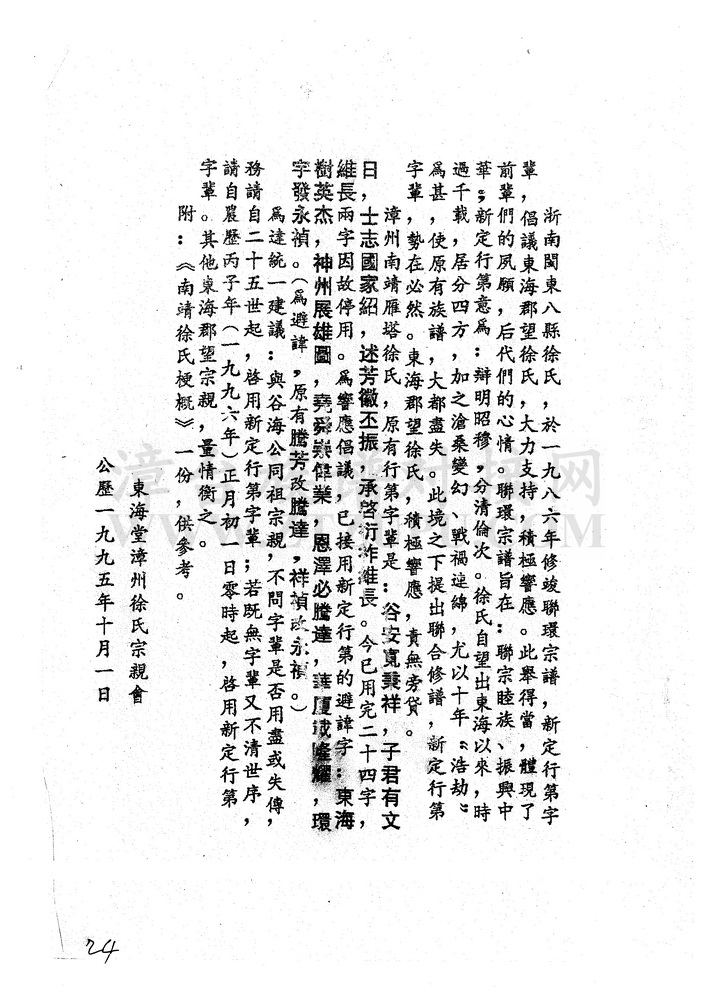 浙南閩東八縣徐氏，於一九八六年修竣聯環宗譜，新定行第字
輩，倡議東海郡望徐氏，大力支持，積極響應。此舉得當，體現了
前輩們的夙願，后代們的心情。聯環宗譜旨在：聯宗睦族、振興中
華；新定行第意爲：辯明昭穆，分清倫次。徐氏自望出東海以來，時
過千載，居分四方，加之滄桑變幻、戰禍連綿，尤以十年“浩劫”
爲甚，使原有族譜，大都盡失。此境之下提出聯合修譜，新定行第
字輩，勢在必然。東海郡望徐氏，積極響應，責無旁貸。
漳州南靖雁塔徐氏，原有行第字輩是：谷安寬秉祥，子君有文
日，士志國家紹，述芳徽丕振，承啓衍祚維長。今已用完二十四字，
維長兩字因故停用。爲響應倡議，已接用新定行第的避諱字：東海
樹英杰，神州展雄圖，堯舜崇偉業，恩澤必騰達，華廈咸隆耀，環
宇發永禎。（爲避諱，原有騰芳改騰達，祥禎改永禎。）
爲達統一建議：與谷海公同祖宗親，不問字輩是否用盡或失傳，
務請自二十五世起，啓用新定行第字輩；若既無字輩又不清世序，
請自農歷丙子年（一九九六年）正月初一日零時起，啓用新定行第
字輩。其他東海郡望宗親，量情衡之。
附：《南靖徐氏梗概》一份，供參考。
東海堂漳州徐氏宗親會
公歷一九九五年十月一日
24